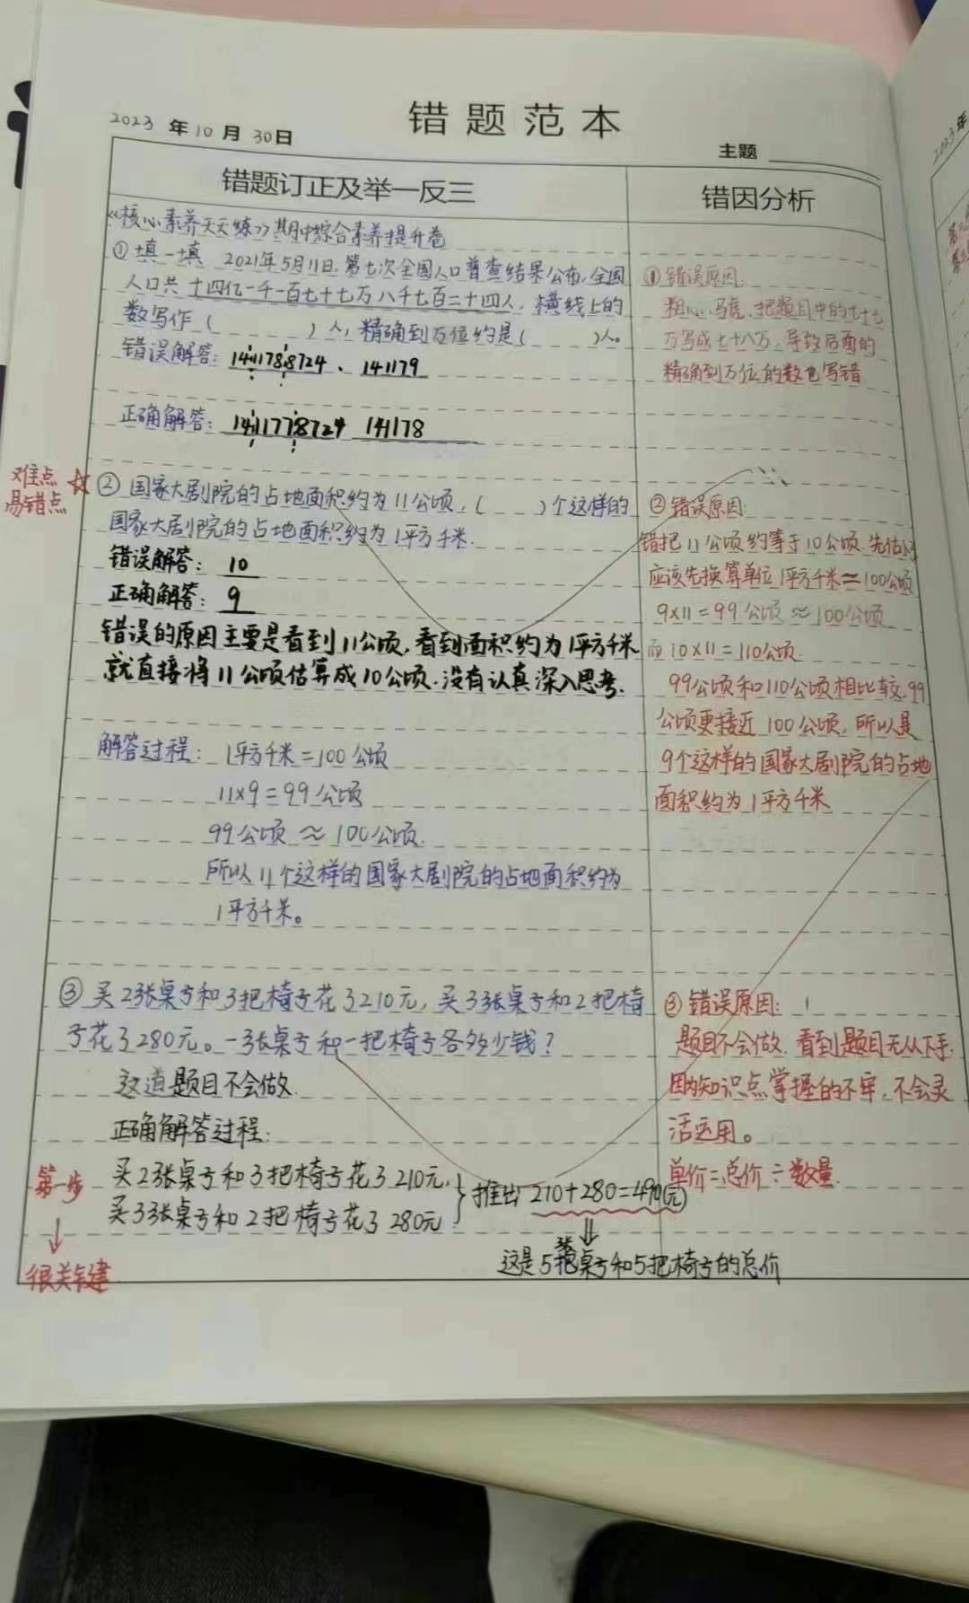 错题范本
2023年10月30日
主题
错题订正及举一反三
错因分析
《核心素养天天练》期中综合素养提升卷
①填一填 2021年5月11日,第七次全国人口普查结果公布,全国
人口共十四亿一千一百七十七万八千七百二十四人,横线上的
数写作( )人,精确到万位约是( )人。
错误解答:1411788724、141179
正确解答:1411778724 141178
①错误原因:
粗心马虎,把题目中的七十七
万写成七十八万,导致后面的
精确到万位的数也写错
难点
易错点
②国家大剧院的占地面积约为11公顷,( )个这样的
国家大剧院的占地面积约为1平方千米.
错误解答:10
正确解答:9
错误的原因主要是看到11公顷,看到面积约为1平方千米
就直接将11公顷估算成10公顷.没有认真深入思考.
解答过程:1平方千米=100公顷
11×9=99公顷
99公顷≈100公顷.
所以11个这样的国家大剧院的占地面积约为
1平方千米。
②错误原因:
错把11公顷约等于10公顷.先估
应该先换算单位1平方千米=100公顷
9×11=99公顷≈100公顷
而10×11=110公顷.
99公顷和110公顷相比较,99
公顷更接近100公顷,所以是
9个这样的国家大剧院的占地
面积约为1平方千米
③买2张桌子和3把椅子花了210元,买3张桌子和2把椅
子花了280元。一张桌子和一把椅子各多少钱?
这道题目不会做.
正确解答过程:
第一步
很关键
买2张桌子和3把椅子花了210元.
买3张桌子和2把椅子花了280元
推出210+280=490(元)
这是5张桌子和5把椅子的总价
③错误原因:
题目不会做.看到题目无从下手.
因为知识点掌握的不牢,不会灵
活运用。
单价=总价÷数量.